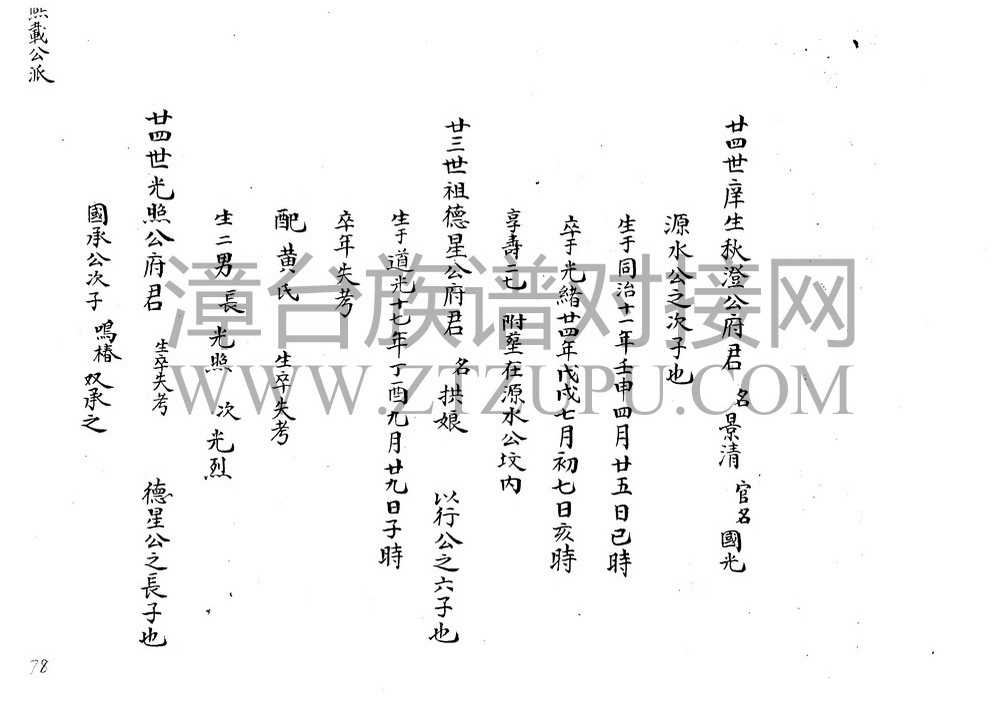 廿四世庠生秋澄公府君 名景清 官名國光
源水公之次子也
生于同治十一年壬申四月廿五日巳時
卒于光緒廿四年戊戌七月初七日亥時
享壽二七 附塟在源水公坟内
廿三世祖德星公府君 名拱娘 以行公之六子也
生于道光十七年丁酉九月廿九日子時
卒年失考
配黄氏 生卒失考
生二男 長光照 次光烈
廿四世光照公府君 生卒失考 德星公之長子也
國承公次子 鳴椿双承之
熙載公派
78
漳台族谱对接网
WWW.ZTZUPU.COM